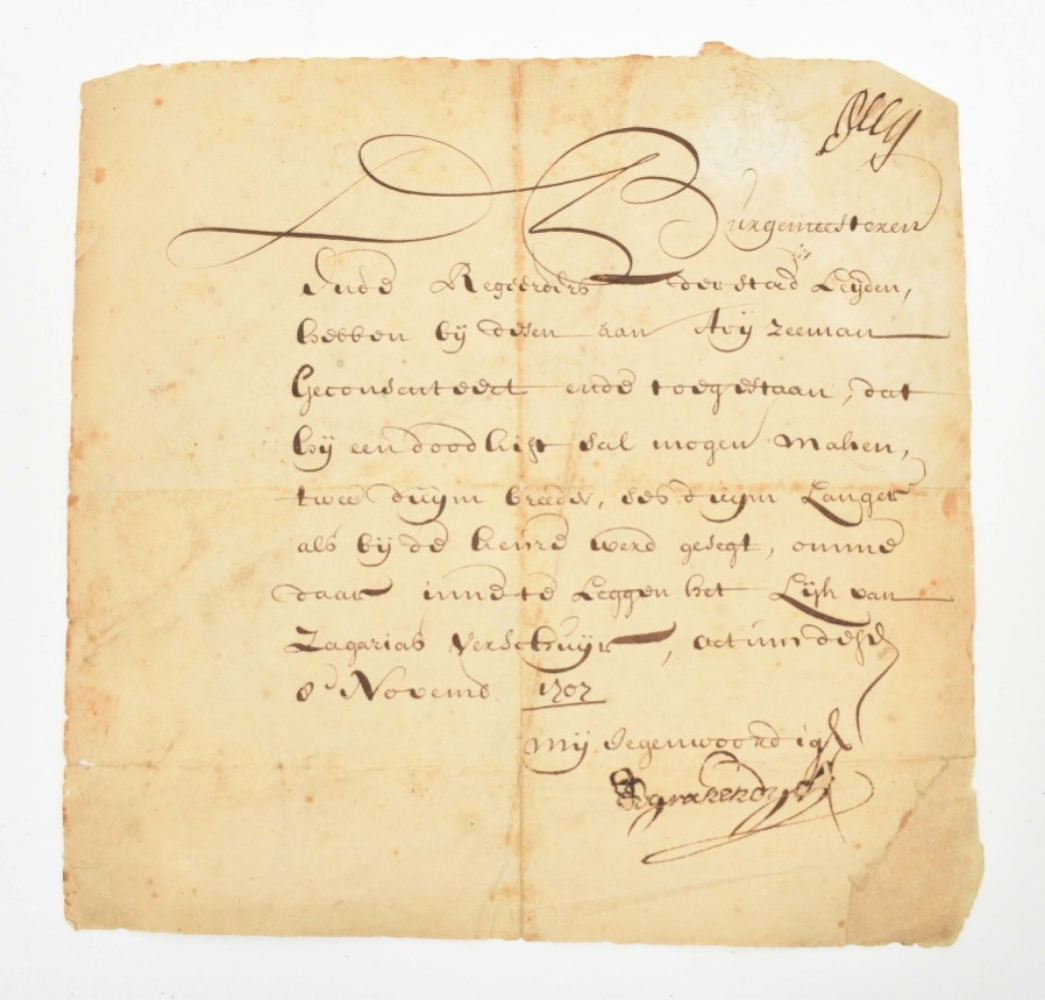 Burgemeesteren
Ende Regeerders der stad Leyden,
hebben bij desen aan Arij Zeeman
Geconsenteert ende toegestaan, dat
hij een doodkist sal mogen maken,
twee duijm breeder, ses duijm Langer
als bij de keure werd gesegt, omme
daar inne te Leggen het Lijk van
Zagarias Verschuijr, actum dese
8e Novemb. 1707
Mij Jegenwoordig